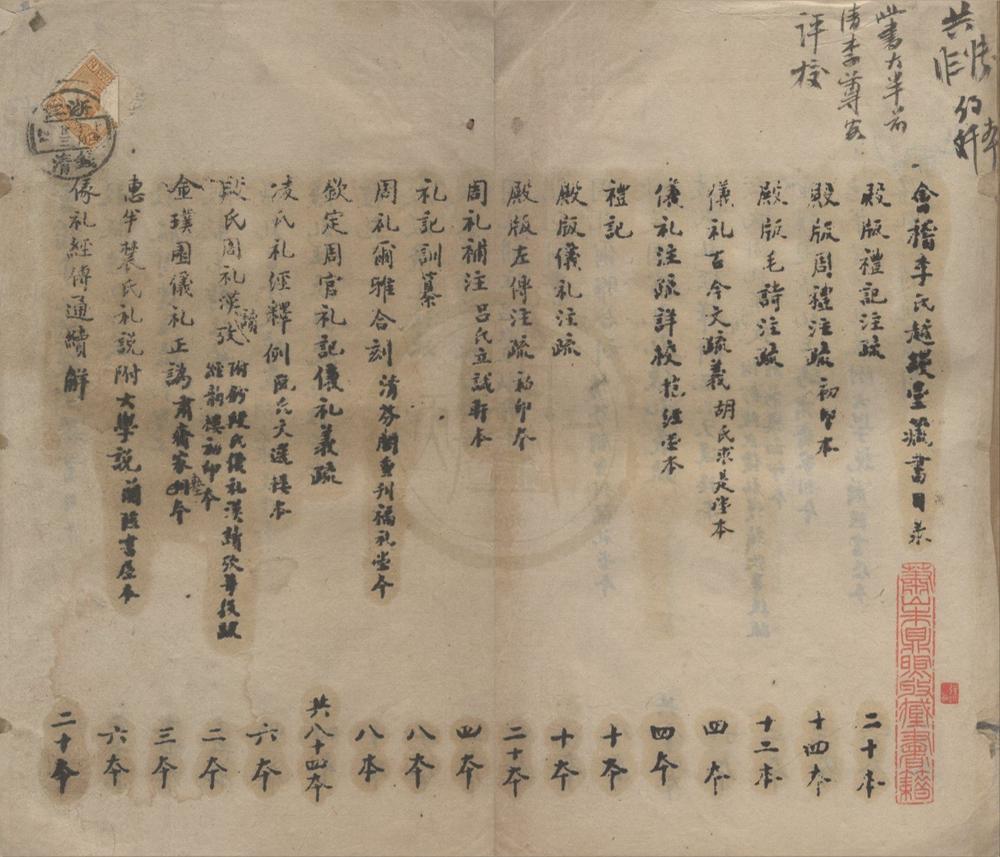 此書大半前
清李蓴客
評校
會稽李氏越縵堂藏書目录
殿版禮記注疏 二十本
殿版周禮注疏 初印本 十四本
殿版毛詩注疏 十二本
儀礼古今文疏義 胡氏求是堂本 四本
儀礼注疏詳校 抱經堂本 四本
禮記 十本
殿版儀礼注疏 十本
殿版左傳注疏 初印本 二十本
周礼補注 呂氏立誠軒本 四本
礼記訓纂 八本
周礼爾雅合刻 清芬閣重刊福礼堂本 八本
欽定周官礼記儀礼義疏 共八十四本
凌氏礼經釋例 阮氏文選樓本 六本
段氏周礼漢讀攷 附刻段氏儀礼漢讀攷等段跋 經韵樓初印本 二本
金璞園儀礼正譌 肅齋家刊本 三本
惠半農氏礼説附大學説 蘭陔書屋本 六本
儀礼經傳通續解 二十本
蕭山朱鼎煦收藏書籍